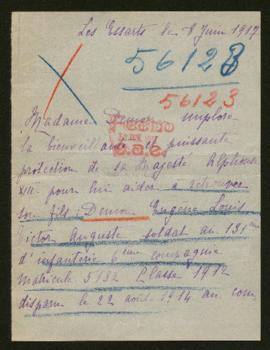 Les Essarts le 8 Juin 1917
56123
56123
Madame Demon implore
la bienveillante et puissante
protection de sa Majesté Alphonse
XIII pour lui aider a retrouver
son fils Demon Eugene Louis
Victor Auguste soldat au 131ème
d'infanterie 6ème compagnie
matricule 5132 Classe 1912
disparu le 22 août 1914 au com